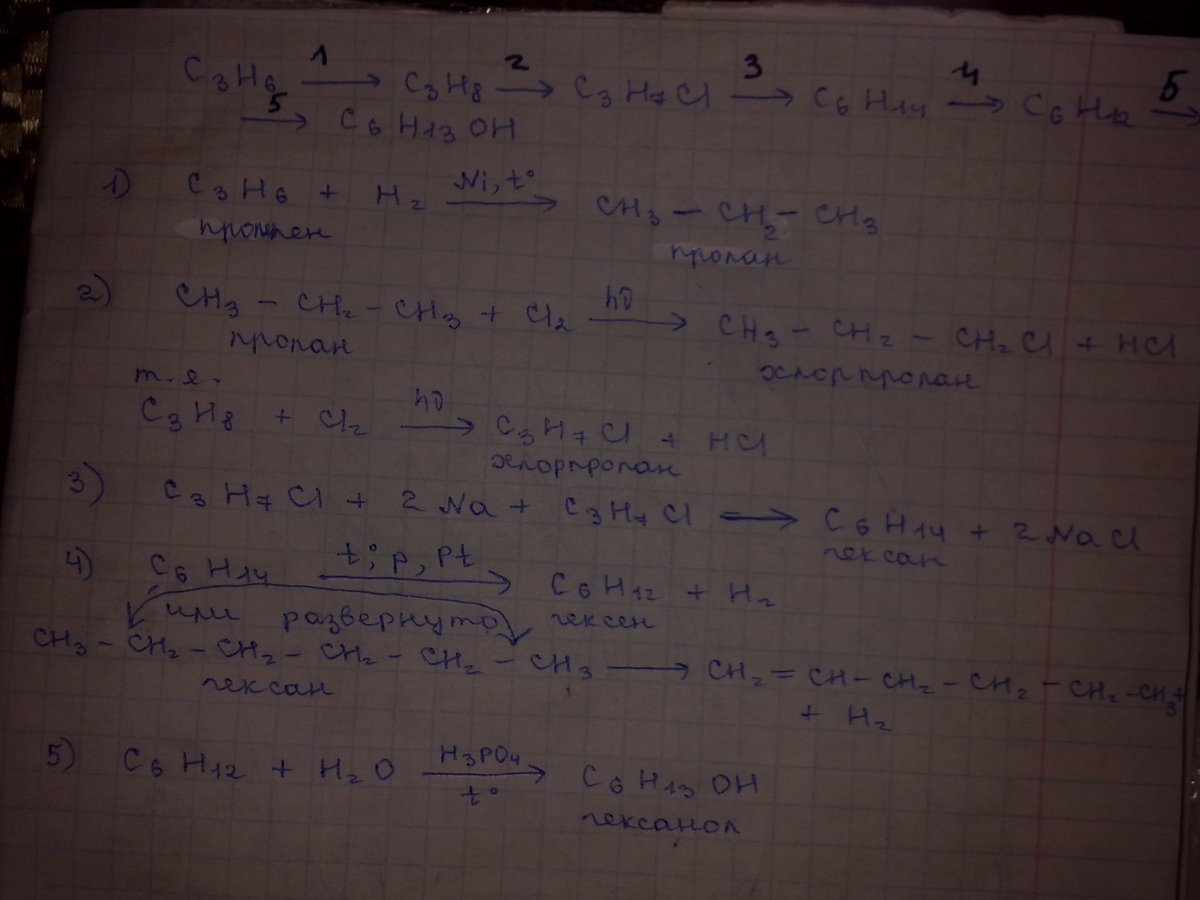 C₃H₆ 1→ C₃H₈ 2→ C₃H₇Cl 3→ C₆H₁₄ 4→ C₆H₁₂ 5→
5→ C₆H₁₃OH
1) C₃H₆ + H₂ Ni, t°→ CH₃ – CH₂ – CH₃
пропен пропан
2) CH₃ – CH₂ – CH₃ + Cl₂ hν→ CH₃ – CH₂ – CH₂Cl + HCl
пропан хлорпропан
т.е.
C₃H₈ + Cl₂ hν→ C₃H₇Cl + HCl
хлорпропан
3) C₃H₇Cl + 2Na + C₃H₇Cl → C₆H₁₄ + 2NaCl
гексан
4) C₆H₁₄ t°, p, Pt→ C₆H₁₂ + H₂
или развернуто гексен
CH₃ – CH₂ – CH₂ – CH₂ – CH₂ – CH₃ → CH₂ = CH – CH₂ – CH₂ – CH₂ – CH₃ +
гексан + H₂
5) C₆H₁₂ + H₂O H₃PO₄, t°→ C₆H₁₃OH
гексанол